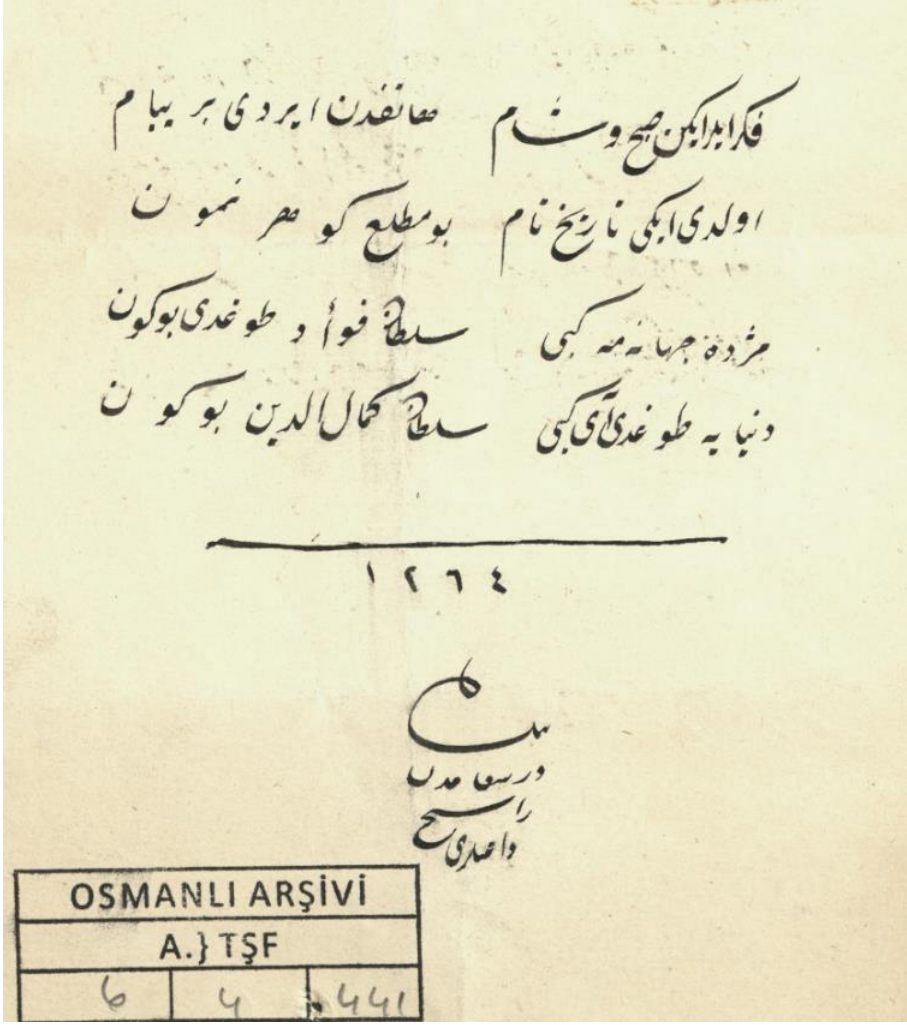 فكر ايدر ايكن صبح وشام هاتفدن ايردى بر پيام
اولدى ايكى تاريخ تام بو مطلع كوهر نمون
مژده جهانه مه كبى سلطان فوأد طوغدى بوكون
دنيايه طوغدى آى كبى سلطان كمال الدين بوكون
١٢٦٤
بنده
درسعامدن
راسخ
داعيلرى
OSMANLI ARŞİVİ
A.} TŞF
6 4 441